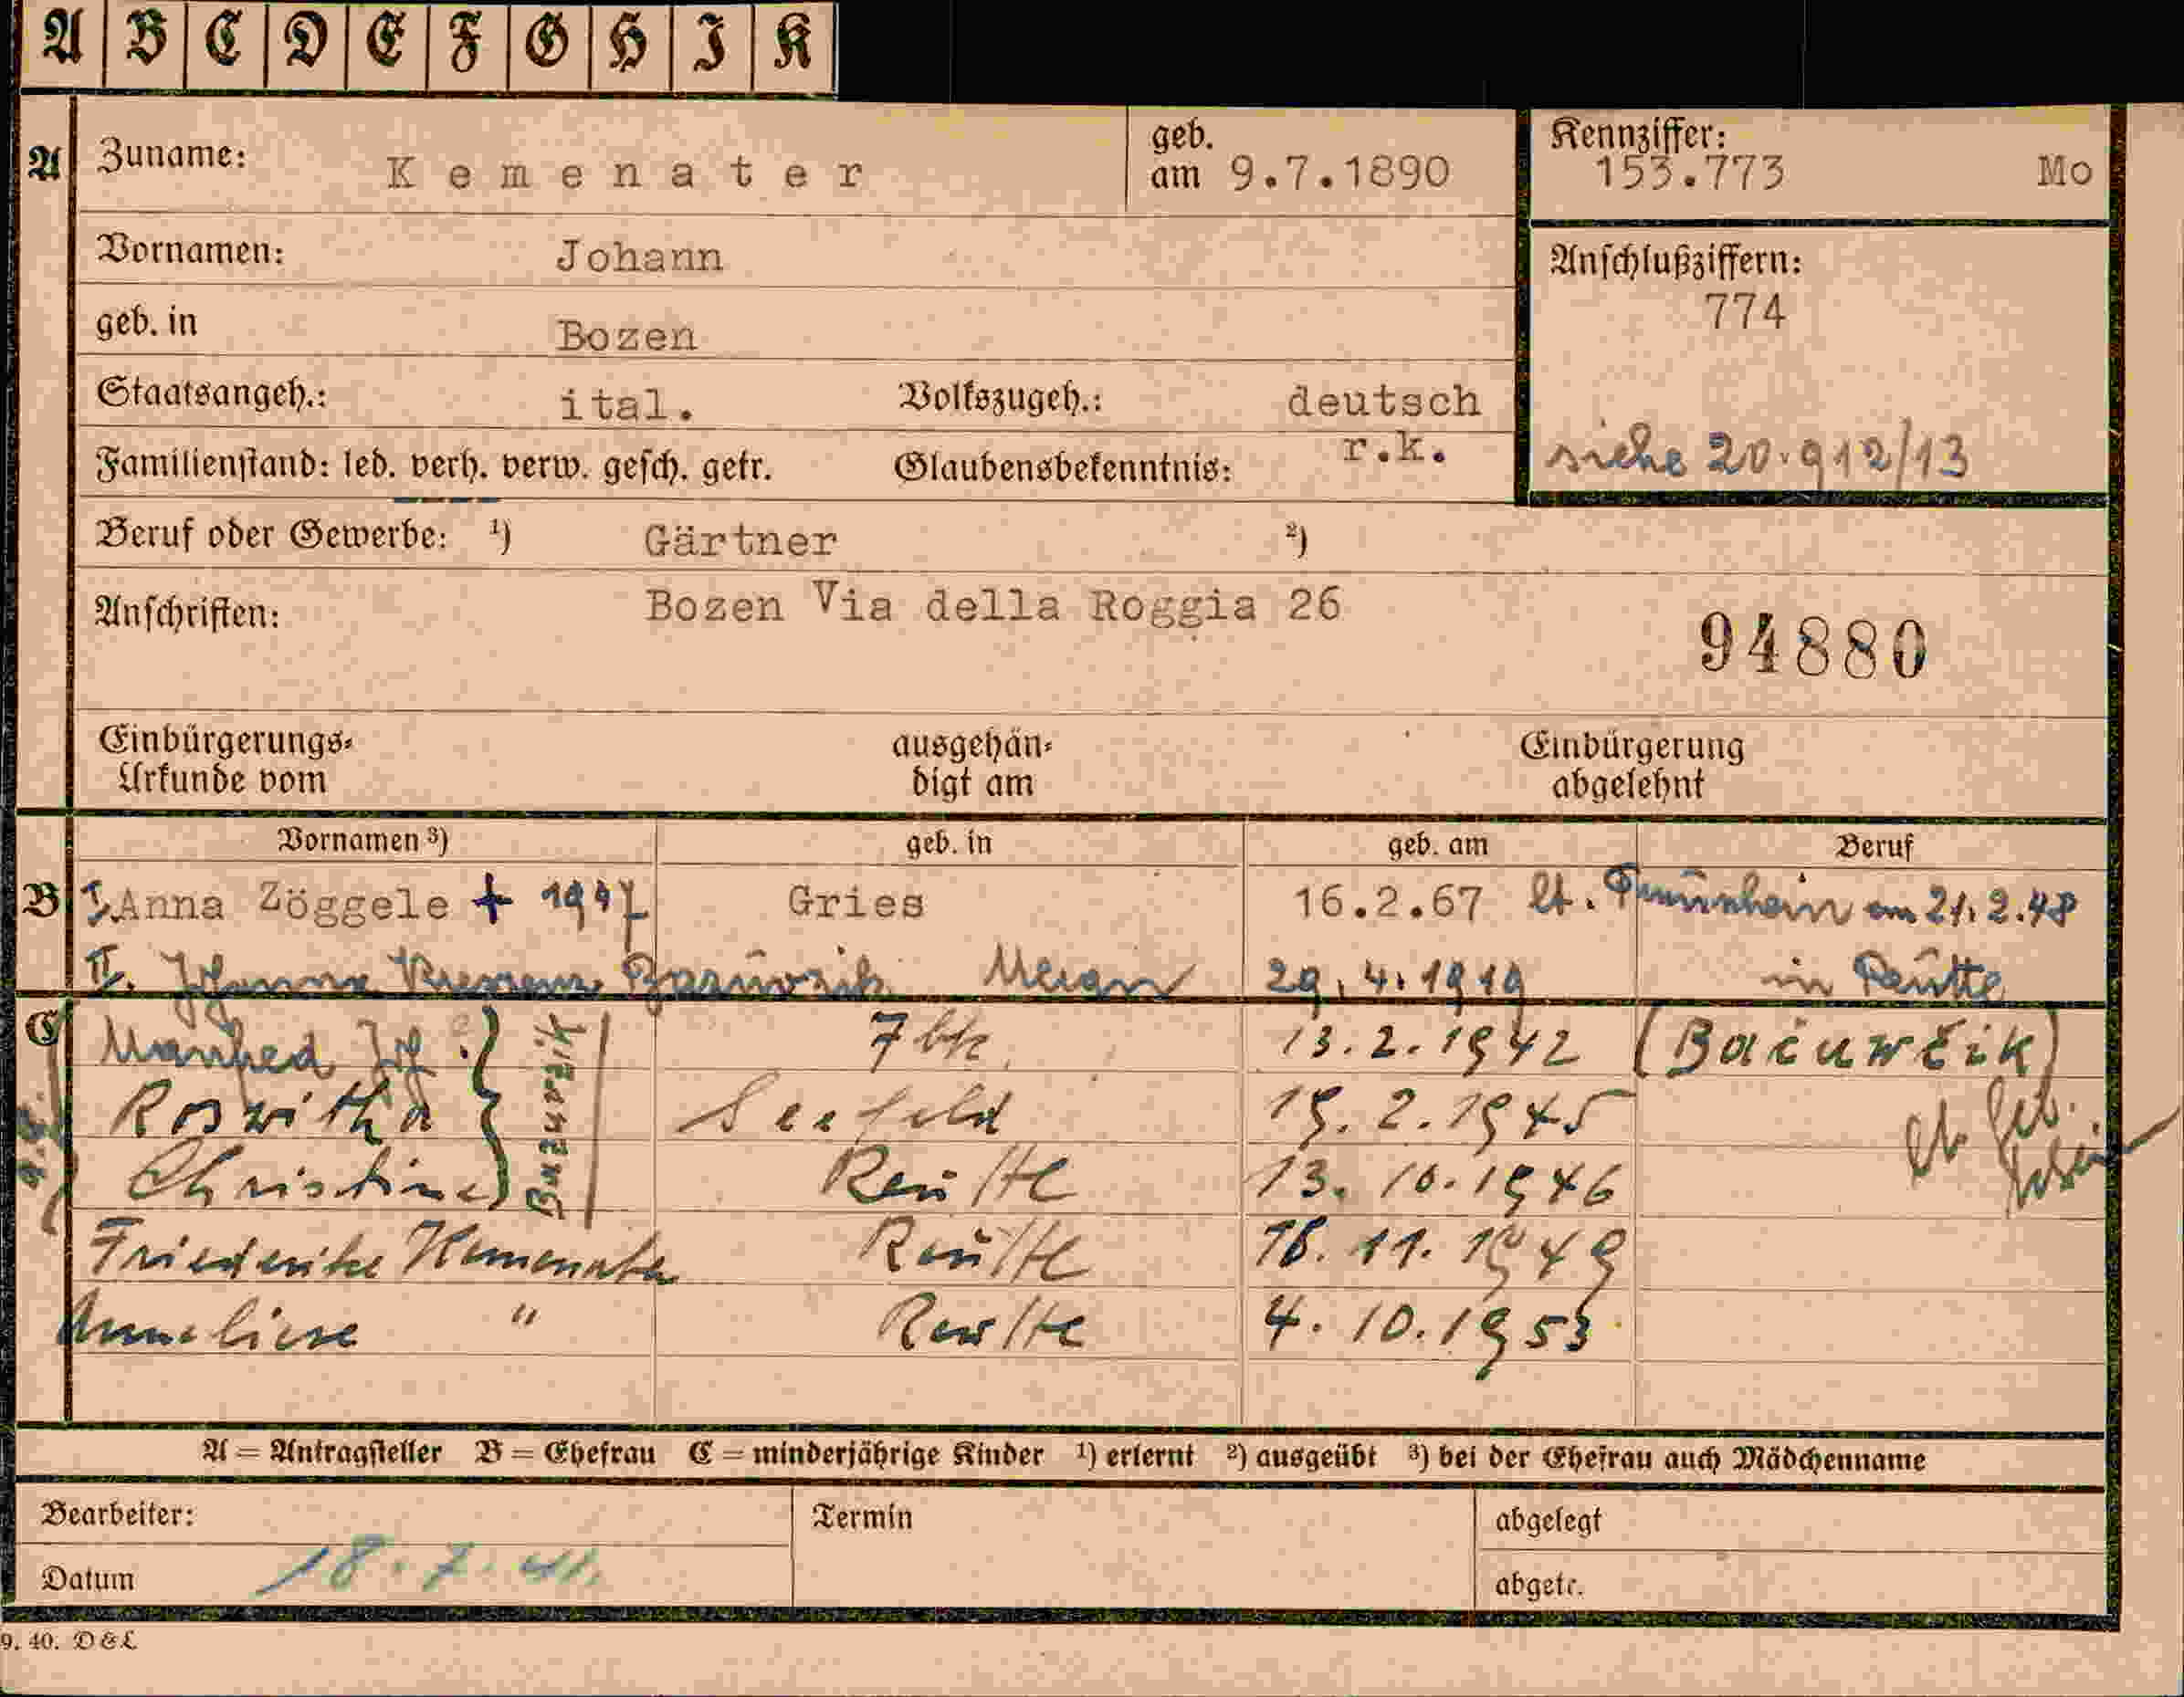 A B C D E F G H I K
A Zuname: Kemenater geb. am 9.7.1890 Kennziffer: 153.773 Mo
Vornamen: Johann Anschlußziffern: 774
geb. in Bozen
Staatsangeh.: ital. Volkszugeh.: deutsch
Familienstand: led. verh. verw. gesch. getr. Glaubensbekenntnis: r.k. siehe 20.912/13
Beruf oder Gewerbe: ¹) Gärtner ²)
Anschriften: Bozen Via della Roggia 26
94880
Einbürgerungs-Urkunde vom ausgehändigt am Einbürgerung abgelehnt
Vornamen ³) geb. in geb. am Beruf
B I. Anna Zöggele + 1947 Gries 16.2.67 lt. am 21.2.48
II. Johanna Meran 29.4.1919 in Reutte
C Manfred Jos. Ibk. 13.2.1942 (Bačuwčik)
Roswitha Seefeld 19.2.1945 lt. Geb.
Christine Reutte 13.10.1946 schein
Friederike Kemenater Reutte 18.11.1949
Anneliese " Reutte 4.10.1953
A = Antragsteller B = Ehefrau C = minderjährige Kinder ¹) erlernt ²) ausgeübt ³) bei der Ehefrau auch Mädchenname
Bearbeiter: Termin abgelegt
Datum 18.7.41. abgetr.
9. 40. D & L